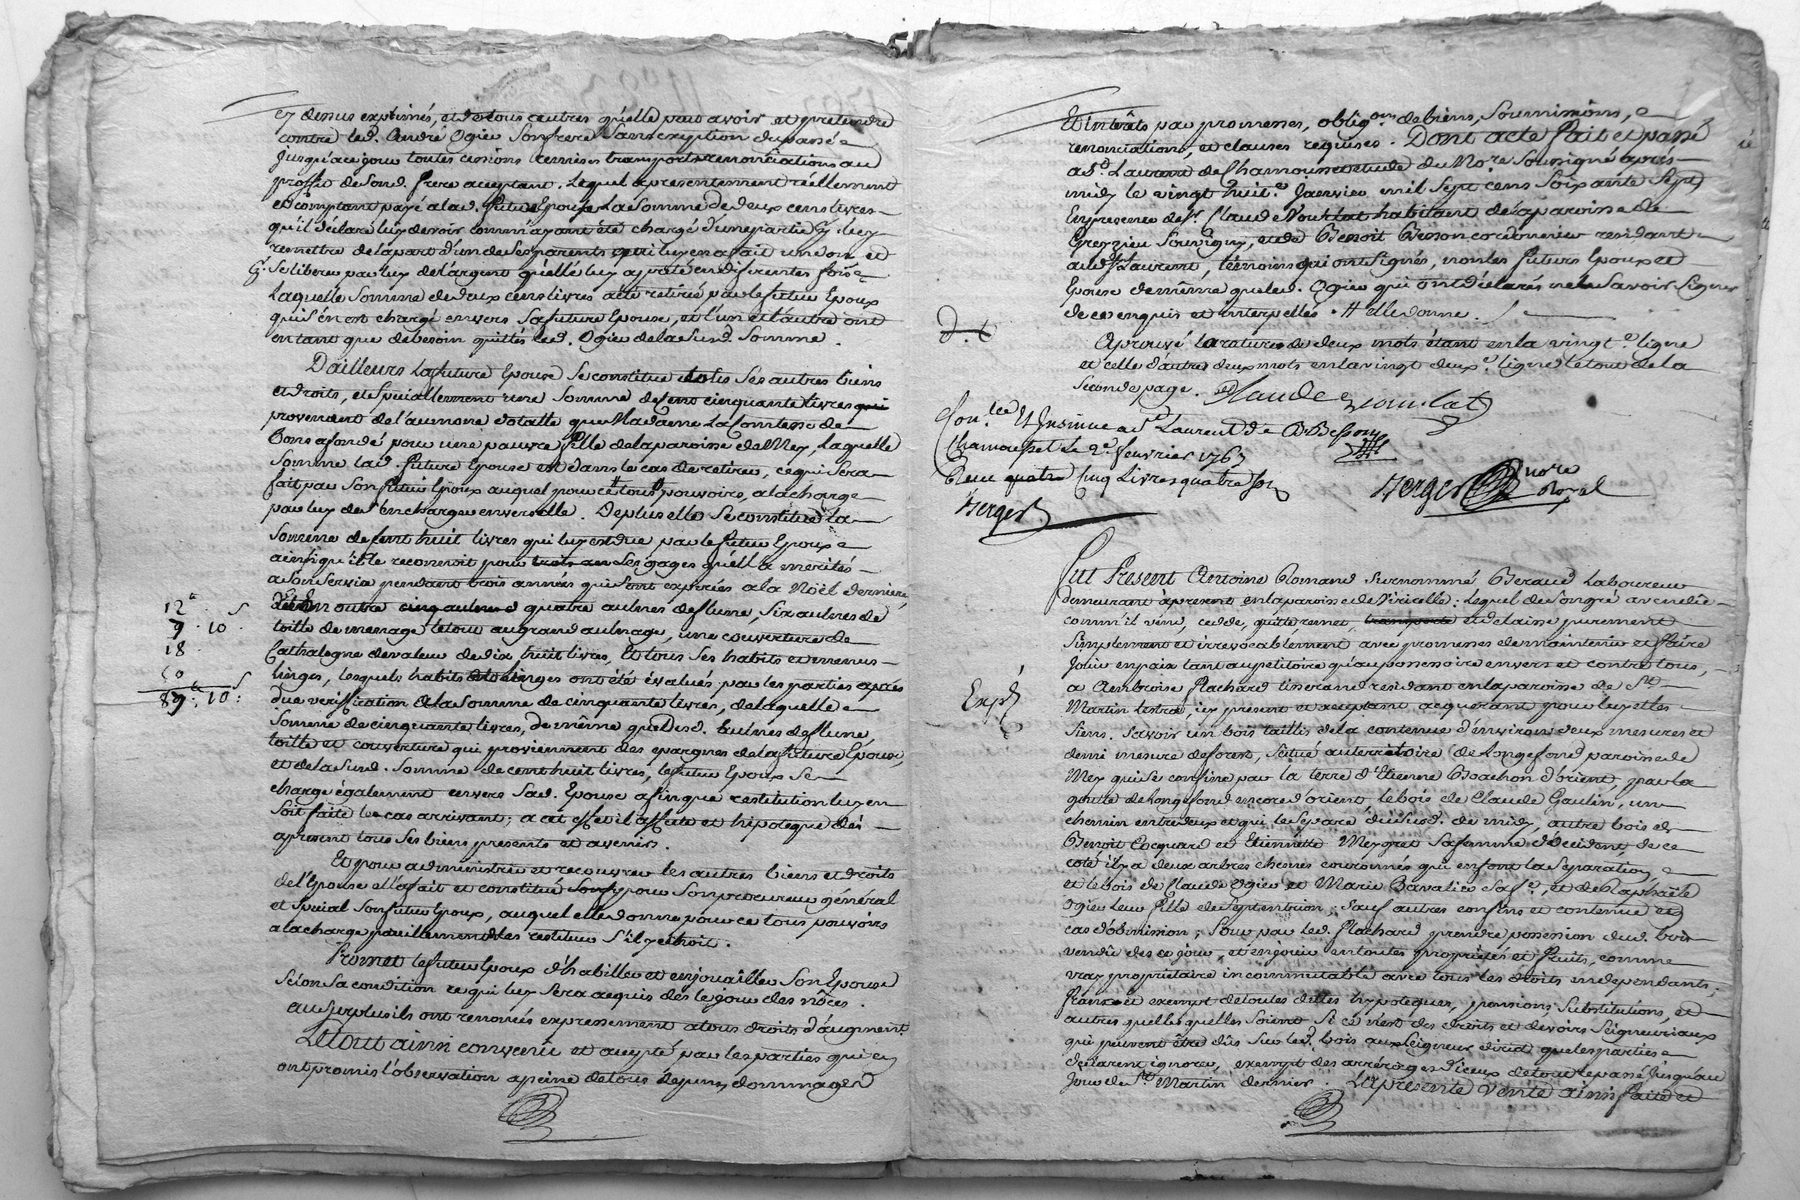 cy dessus exprimés, et de tous autres qu'elle peut avoir et pretendre
contre led. André Ogier son frere sans exception du passé
jusqu'a ce jour toutes cessions remises transports renonciations au
proffit de sond. frere acceptant. Lequel a presentement réellement
et comptant payé a lad. future Epouse la somme de deux cens livres
qu'il déclare luy devoir comm'ayant été chargé d'une partie luy
remettre de la part d'un de ses parents qui luy en a fait un don et
se liberer par luy de l'argent qu'elle luy a preté en differentes fois
Laquelle somme de deux cens livres a été retirée par le futur Epoux
qui s'en est chargé envers sa future Epouse, et l'un et l'autre ont
en tant que de besoin quittés led. Ogier de la susd. somme.
D'ailleurs la future Epouse se constitue tous ses autres biens
et droits, et speciallement une somme de cent cinquante livres
provenant de l'aumone dotalle que Madame la Comtesse de
Bone a fondé pour une pauvre fille de la paroisse de Meys, laquelle
somme lad. future Epouse est dans le cas de retirer, ce qui sera
fait par son futur Epoux auquel pour ce tous pouvoirs, a la charge
par luy de s'en charger envers elle. De plus elle se constitue la
somme de cent huit livres qui luy est due par le futur Epoux
ainsi qu'il le reconnoit pour ses gages qu'elle a mérités
a son service pendant trois années qui sont expirées a la Noël derniere
En outre quatre aulnes de flune, six aulnes de
toille de menage le tout au grand aulnage, une couverture de
Cathalogne de valeur de dix huit livres, Et tous ses habits et menus
linges, lesquels habits et linges ont été évalués par les parties après
due veriffication a la somme de cinquante livres, de laquelle
somme de cinquante livres, de même que desd. aulnes de flune,
toille et couverture qui proviennent des epargnes de la future Epouse,
et de la susd. somme de cent huit livres, le futur Epoux se
charge également envers sad. Epouse afin que restitution luy en
soit faite le cas arrivant; a cet effet il affecte et hipoteque dès
apresent tous ses biens presents et avenirs.
Et pour administrer et recouvrer les autres biens et droits
de l'Epouse elle a fait et constitué pour son procureur général
et special son futur Epoux, auquel elle donne pour ce tous pouvoirs
a la charge pareillement de les restituer s'il y echoit.
Promet le futur Epoux d'habiller et enjoailler son Epouse
selon sa condition ce qui luy sera acquis dès le jour des nôces.
au surplus ils ont renoncés expressement a tous droits d'augment.
Le tout ainsi convenû et accepté par les parties qui en
ont promis l'observation a peine de tous depens, dommages
12# . s
9 . 10 .
18
50
89# . 10 s :
Et interêts par promesses, obligons de biens, soumissions,
renonciations, et clauses requises. Dont acte fait et passé
a St. Laurent de Chamousset etude du Nore soussigné après
midy le vingt huite. Janvier mil sept cens soixante sept
En presence de sr. Claude Nourlat habitant de la paroisse de
Grezieu Souvigny, et de Benoit Besson cordonnier residant
aud. St Laurent, témoins qui ont signés, non les futurs Epoux et
Epouse de même que led. Ogier qui ont déclarés ne le savoir signer
de ce enquis et interpellés.
Aprouvé la rature de deux mots étant en la vingte. ligne
et celle d'autres deux mots en la vingt deuxe. ligne le tout de la
seconde page. Claude nourlat
B. Besson
Conlée. et Insinué a St. Laurent de
Chamousset le 2e. fevrier 1767
Reçu quatre Cinq Livres quatre sols
Berger
Berger nore royal
Fut Present Antoine Romand surnommé Beraud Laboureur
demeurant apresent en la paroisse de Viricelle. Lequel de son gré a vendu
comm'il vend, cedde, quitte remet, transporte et delaisse purement
simplement et irrevocablement avec promesses de maintenir et faire
joüir en paix tant au petitoire qu'au possessoire envers et contre tous,
a Ambroise Flachard tisserand residant en la paroisse de St.
Martin Lestra, icy present et acceptant acquerant pour luy et les
siens. Savoir un bois taillis de la contenue d'environ deux mesures et
demi mesure de forest, scitué au territoire de Longefond paroisse de
Meys qui se confine par la terre d'Etienne Bachon d'orient, par la
goutte de Longefond encore d'orient, le bois de Claude Goutin, un
chemin entredeux et qui le separe du susd. du midy, autre bois de
Benoit Cocquard et Etiennette Meygret sa femme d'occident, de ce
coté il y a deux arbres chesnes couronnés qui en font la separation,
et le bois de Claude Ogier et Marie Bavalier sa fe., et de Raphaële
Ogier leur fille de septentrion, sauf autres confins et contenue en
cas d'obmission; Pour par led. Flachard prendre possession dud. bois
vendu des ce jour, et en jouir en toutes proprietés et fruits, comme
vray proprietaire incommutable avec tous les droits independants,
franc et exempt de toutes dettes hypoteques, pensions, substitutions, et
autres quelles quelles soient si ce n'est des droits et devoirs seigneuriaux
qui peuvent être dûs sur led. bois aux seigneurs direct que les parties
declarent ignorer, exempt des arrérages d'iceux de tout le passé jusqu'au
jour de St. Martin dernier. La presente vente ainsi faite et
Expd